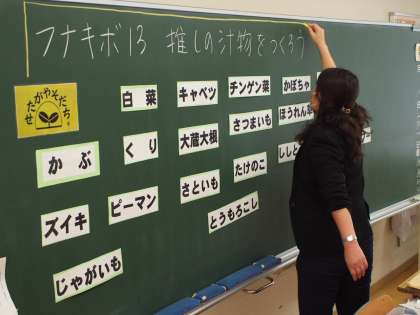 フナキボ13 推しの汁物をつくろう
せたがやそだち
白菜 キャベツ チンゲン菜 かぼちゃ
かぶ くり 大蔵大根 さつまいも ほうれん草
ズイキ ピーマン さといも たけのこ
じゃがいも とうもろこし